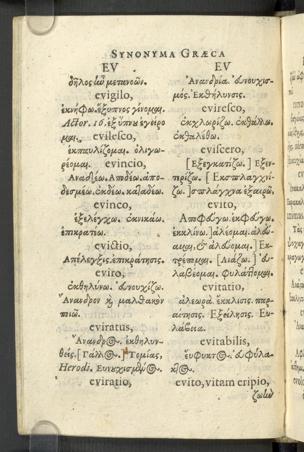 SYNONYMA GRÆCA
EV
δῆλος ὢν μετανοῶν.
evigilo,
ἐκνήφω. ἔξυπνος γίνομαι.
Actor. 16. ἐξ ὕπνου ἐγείρο
μαι.
evilesco,
ἐκφαυλίζομαι. ὀλιγω-
ρέομαι.
evincio,
Ἀναδέω. Ἀποδέω. ἀπο-
δεσμέω. ἐκδέω. καταδέω.
evinco,
ἐξελέγχω. ἐκνικάω.
ἐπικρατέω.
evictio,
Ἀπέλεγξις. ἐπικράτησις.
eviro,
ἐκθηλύνω. εὐνουχίζω.
Ἄνανδρον καὶ μαλθακὸν
ποιῶ.
eviratus,
Ἄνανδρος. ἐκθηλυν-
θείς. [Γάλλος. Τομίας,
Herodi. Εὐνουχισμένος.
eviratio,
EV
Ἀνανδρία. εὐνουχισ-
μός. Ἐκθήλυνσις.
eviresco,
ἐκχλωρίζω. ἐκθάλλω.
ἐκθαλέθω.
eviscero,
[Ἐξεγκατίζω.] Ἐξεν-
τερίζω. [Ἐκσπλαγχνί-
ζω.] σπλάγχνα ἐξαιρῶ.
evito,
Ἀποφεύγω. ἐκφεύγω.
ἐκκλίνω. ἀλέομαι. ἀλεύ-
αμαι, & ἀλεύομαι. [Ἐκ-
τρέπομαι. [Διάζω.] εὐ-
λαβέομαι. Φυλάττομαι.
evitatio,
ἀλεωρά. ἔκκλισις. παρ-
αίτησις. Ἐξείλησις. Εὐ-
λάβεια.
evitabilis,
εὔφυκτος. εὐφύλα-
κτος.
evito, vitam eripio,